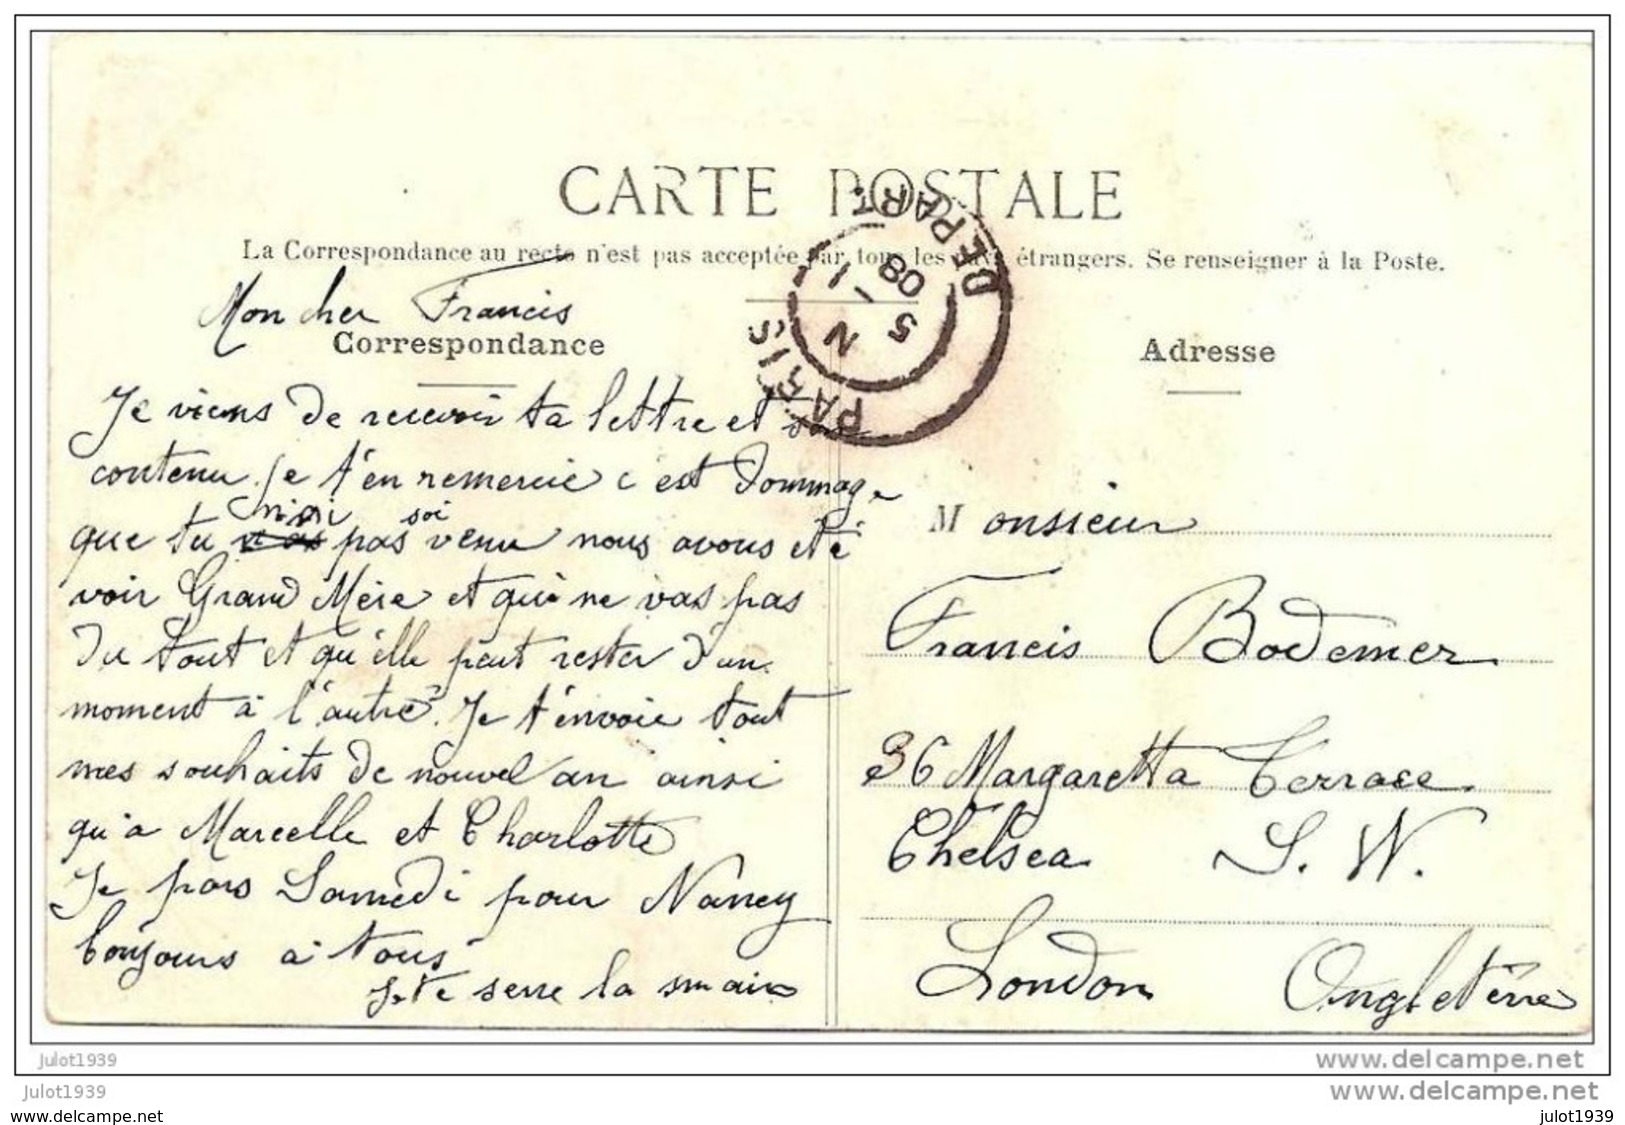 CARTE POSTALE
La Correspondance au recto n'est pas acceptée par tous les pays étrangers. Se renseigner à la Poste.
PARIS DEPART
5 N
1 08
Mon cher Francis
Correspondance
Je viens de recevoir ta lettre et son
contenu. Je t'en remercie c est dommage
que tu pas soi venu nous avons été
voir Grand Mère et qui ne vas pas
du tout et qu'elle peut rester d'un
moment à l'autre. Je t'envoie tout
mes souhaits de nouvel an ainsi
qu'a Marcelle et Charlotte
Je pars Samedi pour Nancy
Toujours a tous
Je te serre la main
Adresse
Monsieur
Francis Bodemer
36 Margaretta Terrace.
Chelsea S. W.
London Angleterre
Julot1939
www.delcampe.net
Julot1939
www.delcampe.net
www.delcampe.net
julot1939